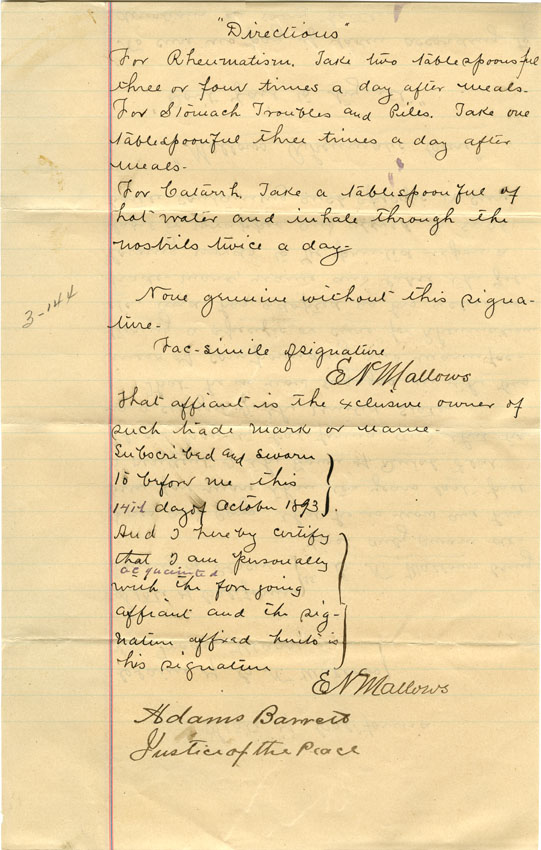 "Directions"
For Rheumatism. Take two tablespoonsful
three or four times a day after meals-
For Stomach Troubles and Piles. Take one
tablespoonful three times a day after
meals-
For Catarrh. Take a tablespoonful of
hot water and inhale through the
nostrils twice a day-
3-144
None genuine without this signa-
ture-
Fac-simile of signature
E N Mallows
That affiant is the exclusive owner of
such trade mark or name-
Subscribed and sworn
to before me this
14th day of October 1893.
And I hereby certify
that I am personally
acquainted
with the foregoing
affiant and the sig-
nature affixed hereto is
his signature
E N Mallows
Adams Barrett
Justice of the Peace